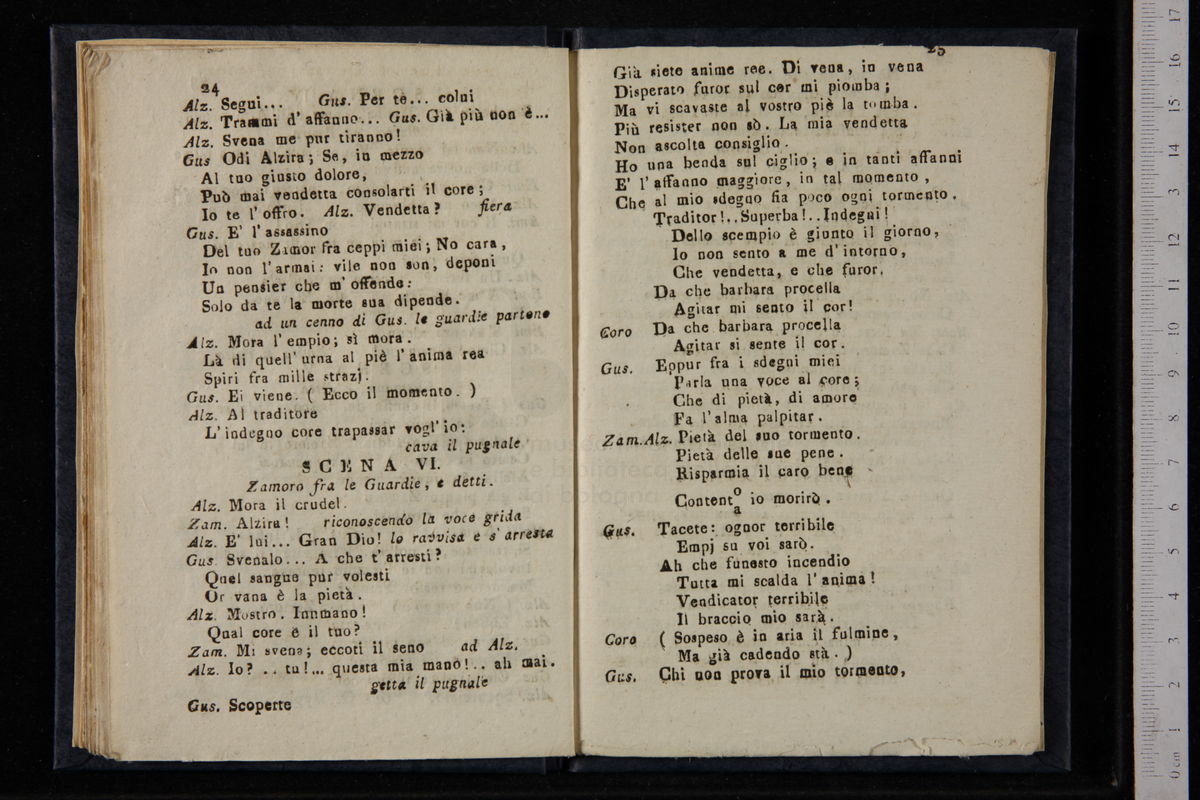 24
Alz. Segui... Gus. Per te... colui
Alz. Trammi d' affanno... Gus. Già più non è...
Alz. Svena me pur tiranno!
Gus Odi Alzira; Se, in mezzo
Al tuo giusto dolore,
Può mai vendetta consolarti il core;
Io te l' offro. Alz. Vendetta? fiera
Gus. E' l' assassino
Del tuo Zamor fra ceppi miei; No cara,
Io non l' armai: vile non son, deponi
Un pensier che m' offende:
Solo da te la morte sua dipende.
ad un cenno di Gus. le guardie partono
Alz. Mora l' empio; sì mora.
Là di quell' urna al piè l' anima rea
Spiri fra mille strazj.
Gus. Ei viene. ( Ecco il momento. )
Alz. Al traditore
L' indegno core trapassar vogl' io:
cava il pugnale
SCENA VI.
Zamoro fra le Guardie, e detti.
Alz. Mora il crudel.
Zam. Alzira! riconoscendo la voce grida
Alz. E' lui... Gran Dio! lo ravvisa e s' arresta
Gus Svenalo... A che t' arresti?
Quel sangue pur volesti
Or vana è la pietà.
Alz. Mostro. Inumano!
Qual core è il tuo?
Zam. Mi svena; eccoti il seno ad Alz.
Alz. Io? .. tu!... questa mia mano!.. ah mai.
getta il pugnale
Gus. Scoperte
25
Già siete anime ree. Di vena, in vena
Disperato furor sul cor mi piomba;
Ma vi scavaste al vostro piè la tomba.
Più resister non sò. La mia vendetta
Non ascolta consiglio.
Ho una benda sul ciglio; e in tanti affanni
E' l' affanno maggiore, in tal momento,
Che al mio sdegno fia poco ogni tormento.
Traditor!..Superba!..Indegni!
Dello scempio è giunto il giorno,
Io non sento a me d' intorno,
Che vendetta, e che furor.
Da che barbara procella
Agitar mi sento il cor!
Coro Da che barbara procella
Agitar si sente il cor.
Gus. Eppur fra i sdegni miei
Parla una voce al core;
Che di pietà, di amore
Fa l' alma palpitar.
Zam.Alz. Pietà del suo tormento.
Pietà delle sue pene.
Risparmia il caro bene
Content o/a io morirò.
Gus. Tacete: ognor terribile
Empj su voi sarò.
Ah che funesto incendio
Tutta mi scalda l' anima!
Vendicator terribile
Il braccio mio sarà.
Coro ( Sospeso è in aria il fulmine,
Ma già cadendo stà. )
Gus. Chi non prova il mio tormento,
museo
e biblioteca
di bologna
0 cm 1 2 3 4 5 6 7 8 9 10 11 12 13 14 15 16 17